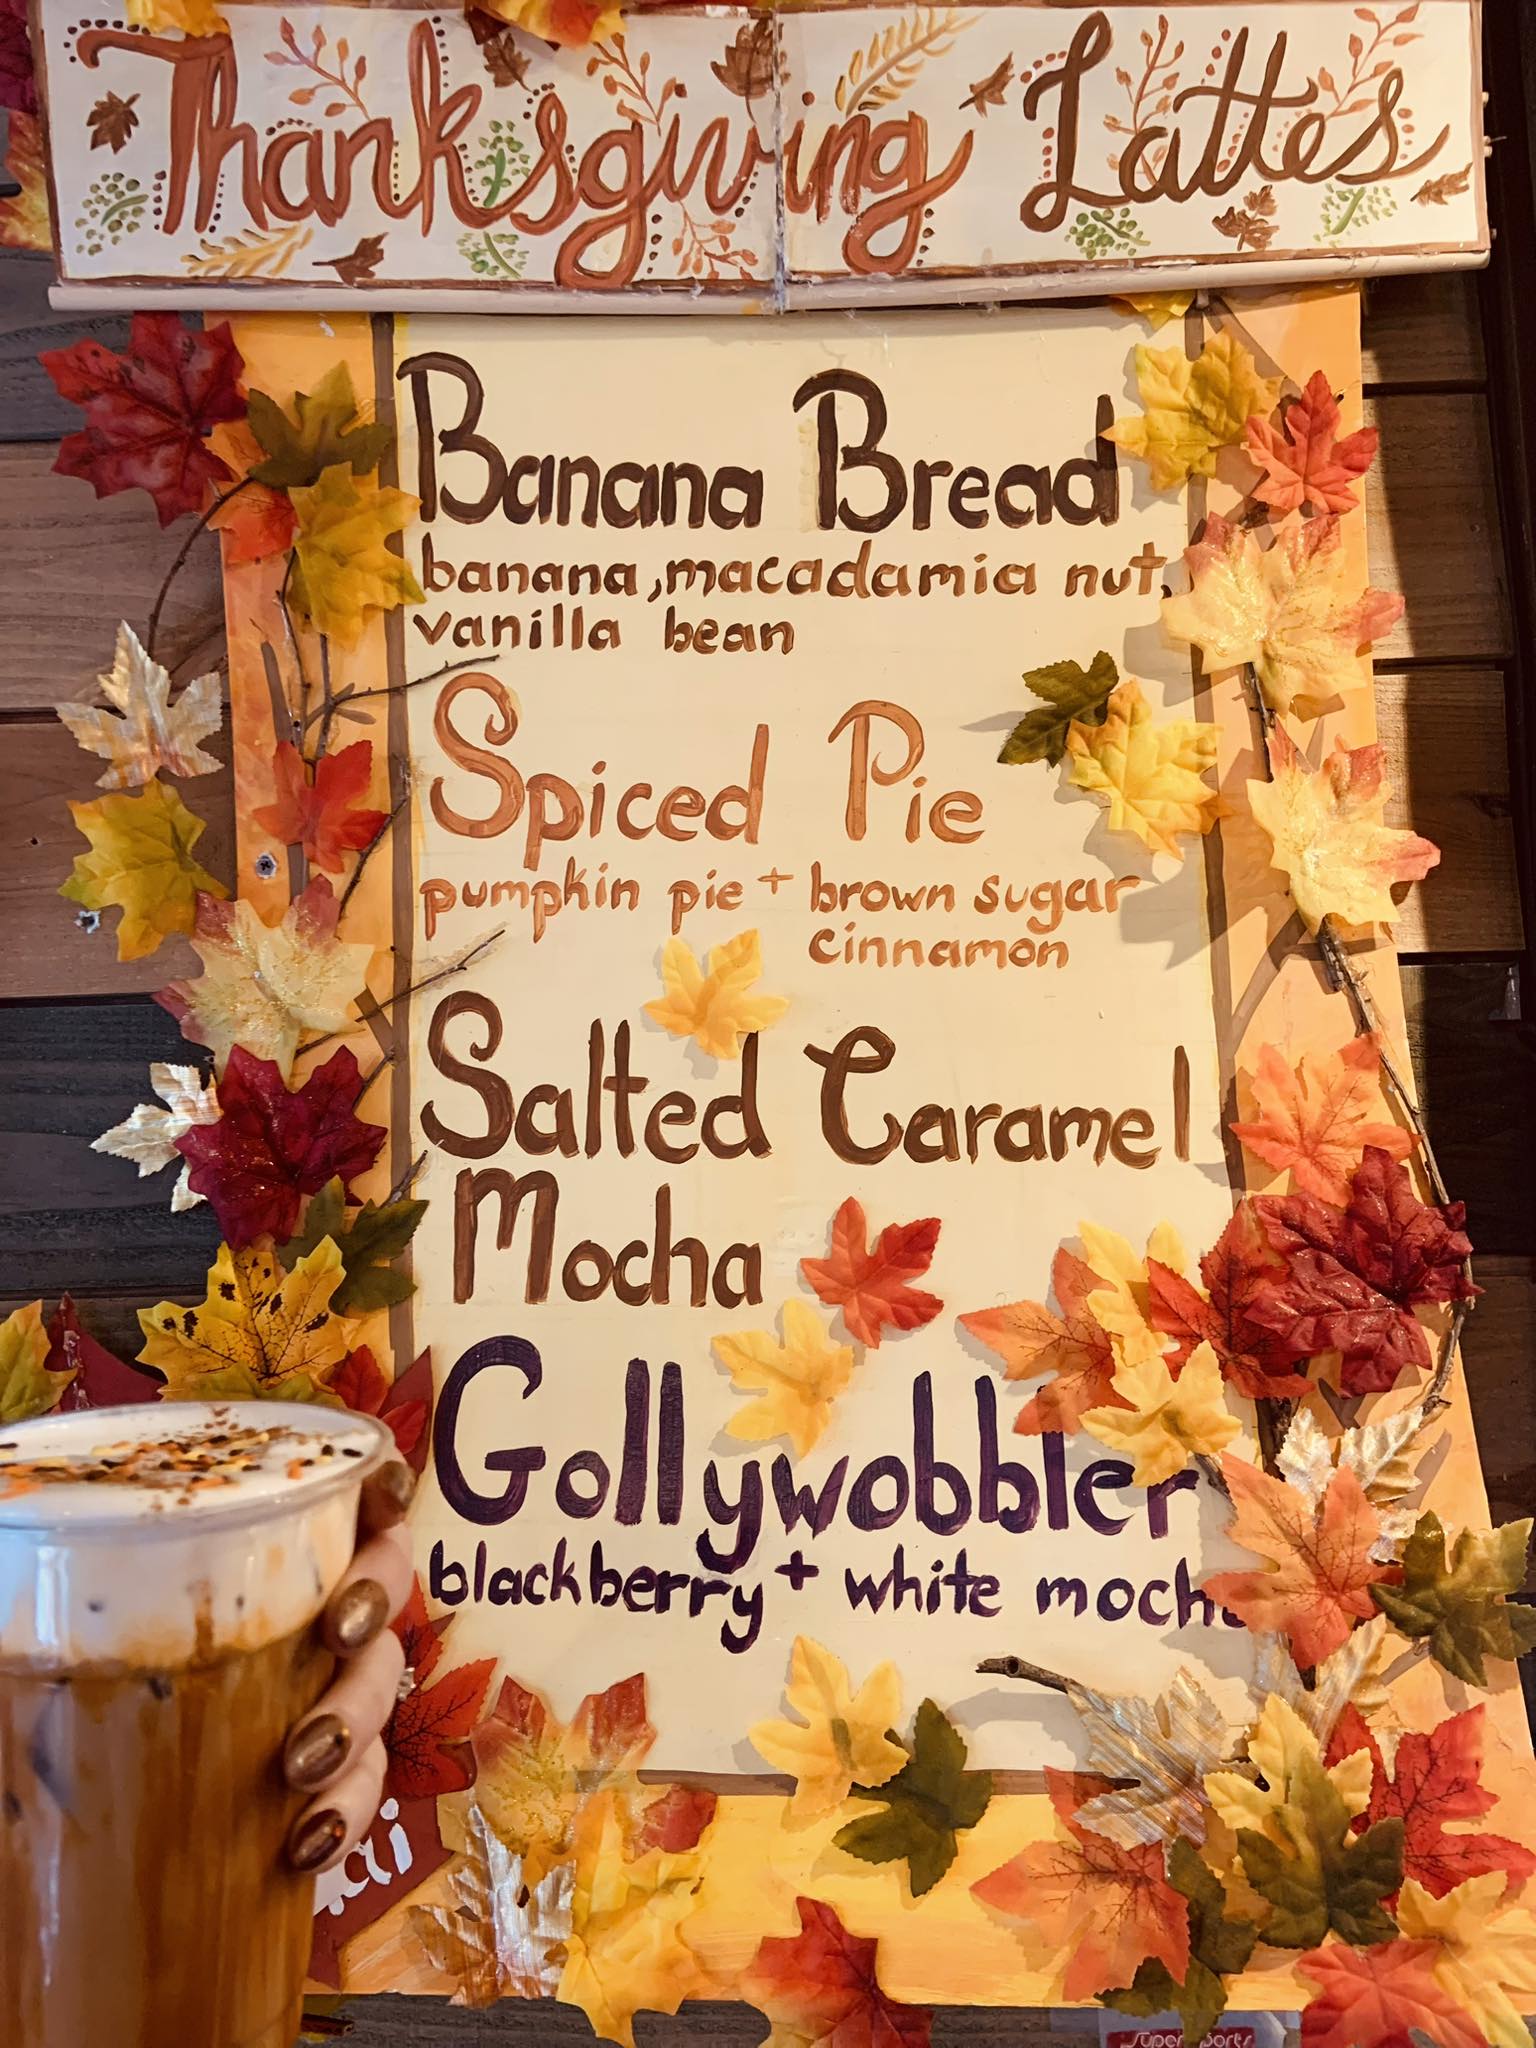 Thanksgiving Lattes
Banana Bread
banana, macadamia nut,
vanilla bean
Spiced Pie
pumpkin pie + brown sugar
cinnamon
Salted Caramel
Mocha
Gollywobbler
blackberry + white mocha